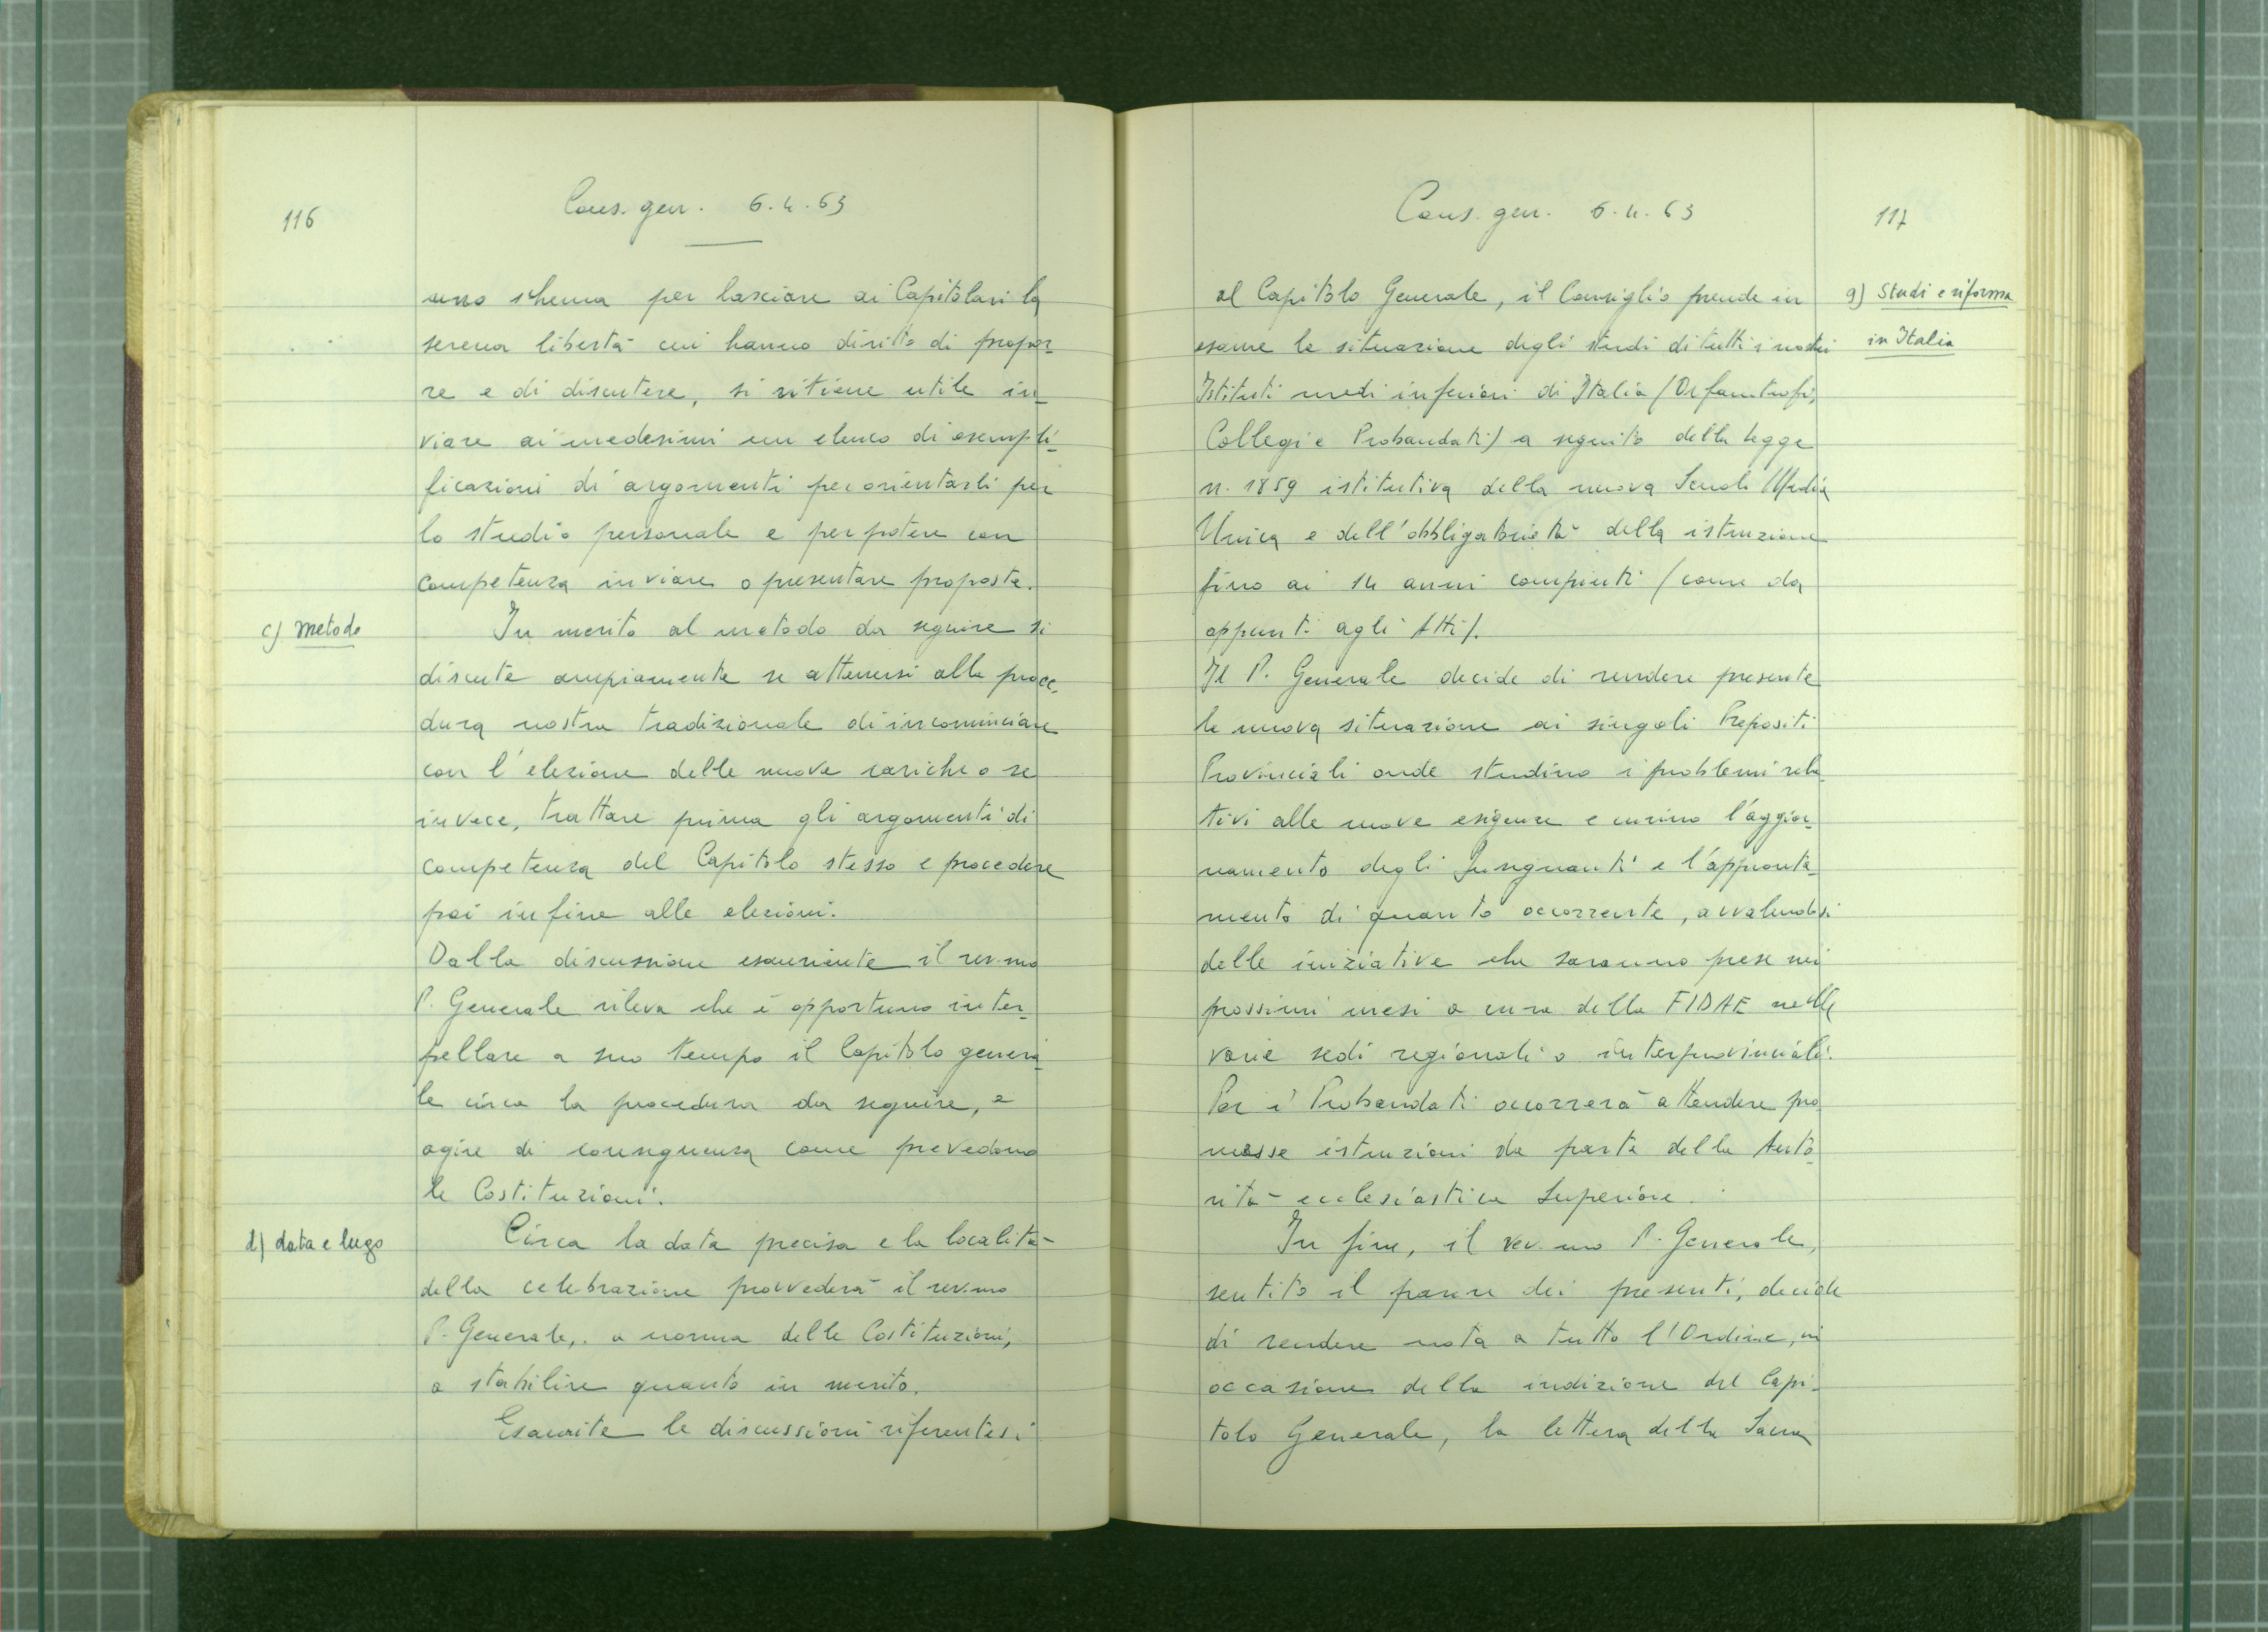 116
Cons. gen. 6.4.63
uno schema per lasciare ai Capitolari la
serena libertà cui hanno diritto di propor-
re e di discutere, si ritiene utile in-
viare ai medesimi un elenco di esempli-
ficazioni di argomenti per orientarli per
lo studio personale e per potere con
competenza inviare o presentare proposte.
c) metodo
In merito al metodo da seguire si
discute ampiamente se attenersi alla proce-
dura nostra tradizionale di incominciare
con l'elezione delle nuove cariche o se
invece, trattare prima gli argomenti di
competenza del Capitolo stesso e procedere
poi infine alle elezioni.
Dalla discussione esauriente il rev.mo
P. Generale rileva che è opportuno inter-
pellare a suo tempo il Capitolo genera-
le circa la procedura da seguire, e
agire di conseguenza come prevedono
le Costituzioni.
d) data e luogo
Circa la data precisa e la località
della celebrazione provvederà il rev.mo
P. Generale, a norma delle Costituzioni,
a stabilire quanto in merito.
Esaurite le discussioni riferentesi
Cons. gen. 6.4.63
117
al Capitolo Generale, il Consiglio prende in
g) Studi e riforma
in Italia
esame la situazione degli studi di tutti i nostri
Istituti medi inferiori di Italia (Orfanotrofi,
Collegi e Probandati) a seguito della legge
n. 1859 istitutiva della nuova Scuola Media
Unica e dell'obbligatorietà della istruzione
fino ai 14 anni compiuti (come da
appunti agli Atti).
Il P. Generale decide di rendere presente
la nuova situazione ai singoli Prepositi
Provinciali onde studino i problemi rela-
tivi alle nuove esigenze e curino l'aggior-
namento degli Insegnanti e l'appronta-
mento di quanto occorrente, avvalendosi
delle iniziative che saranno prese nei
prossimi mesi a cura della FIDAE nelle
varie sedi regionali o interprovinciali.
Per i Probandati occorrerà attendere pro
messe istruzioni da parte della Auto-
rità ecclesiastica Superiore.
In fine, il rev.mo P. Generale,
sentito il parere dei presenti, decide
di rendere nota a tutto l'Ordine, in
occasione della indizione del Capi-
tolo Generale, la lettera della Sacra